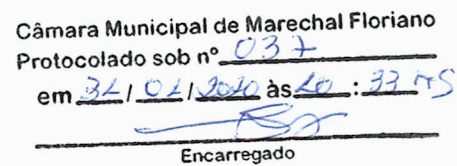 Câmara Municipal de Marechal Floriano
Protocolado sob nº 037
em 31/01/2020 às 10:33 hs
Encarregado